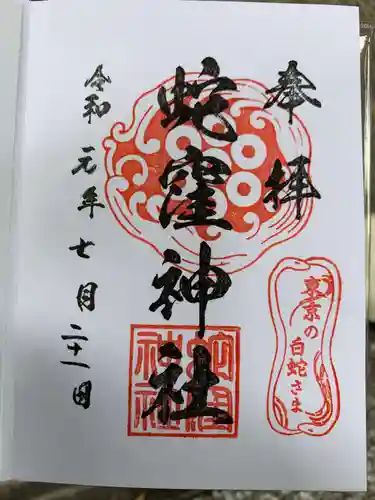 奉拝
蛇窪神社
東京の
白蛇さま
蛇窪神社
令和元年七月二十一日